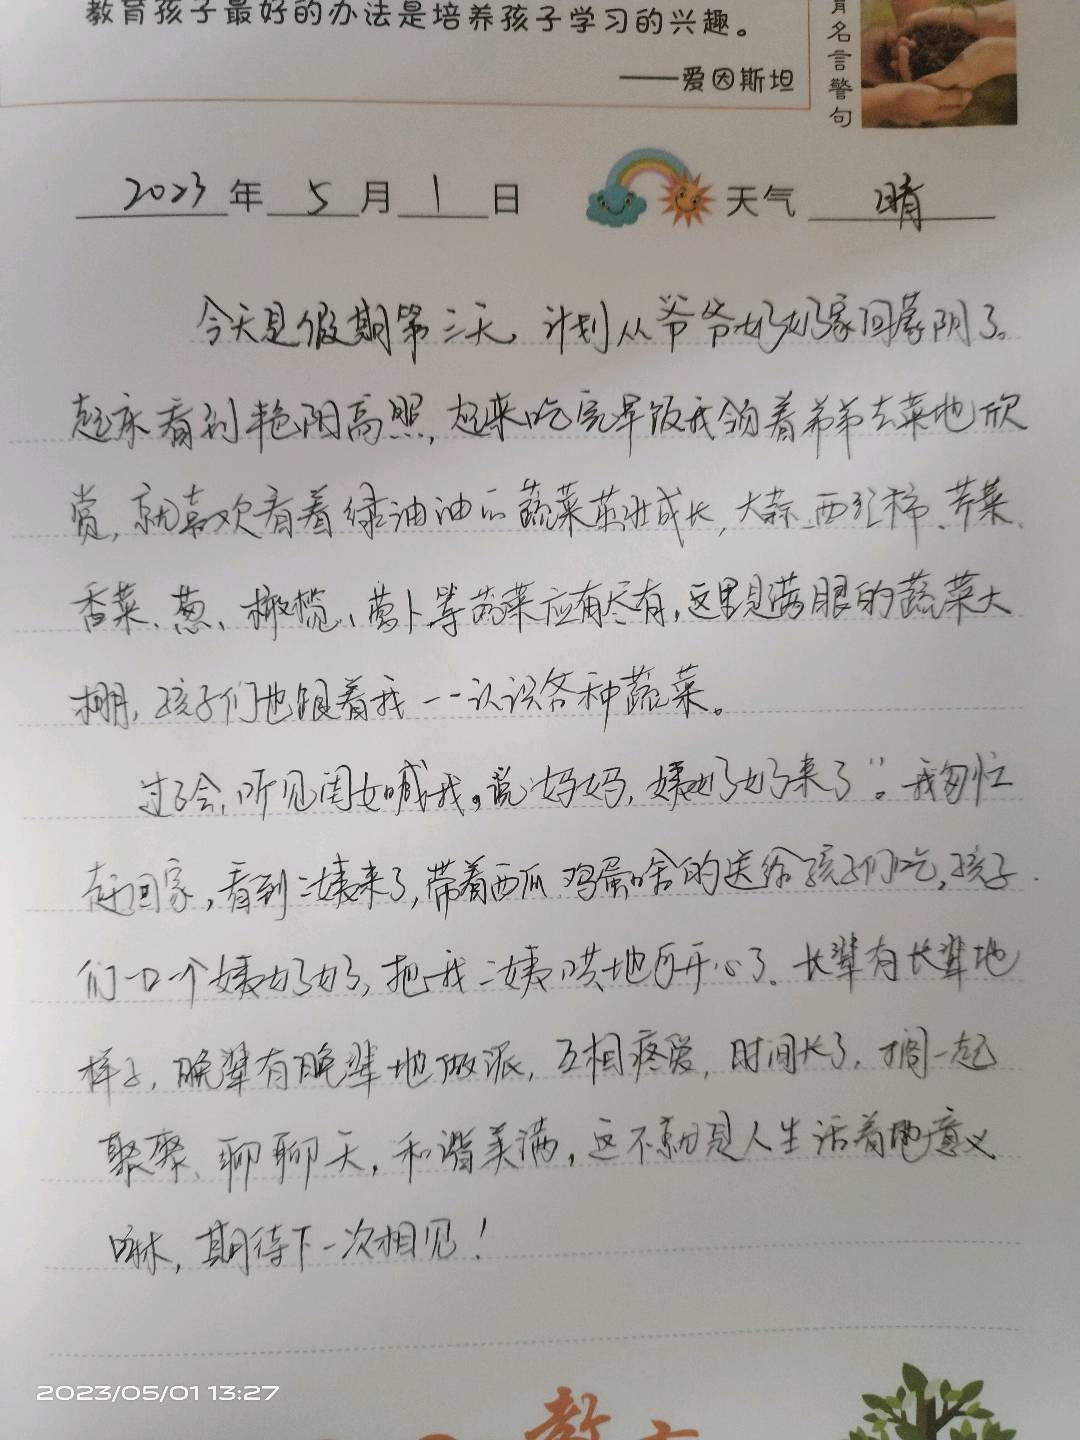 教育孩子最好的办法是培养孩子学习的兴趣。
——爱因斯坦
育名言警句
2023年5月1日 天气 晴
今天是假期第三天，计划从爷爷奶奶家回蒙阴了。
起床看到艳阳高照，起来吃完早饭我领着弟弟去菜地欣
赏，就喜欢看着绿油油的蔬菜茁壮成长，大蒜、西红柿、芹菜、
香菜、葱、橄榄、萝卜等蔬菜应有尽有，这里是满眼的蔬菜大
棚，孩子们也跟着我一一认识各种蔬菜。
过了会，听见闺女喊我。说“妈妈，姨奶奶来了”。我匆忙
赶回家，看到二姨来了，带着西瓜 鸡蛋啥的送给孩子们吃，孩子
们一口一个姨奶奶，把我二姨哄地可开心了。长辈有长辈地
样子，晚辈有晚辈地做派，互相疼爱，时间长了，搁一起
聚聚、聊聊天，和谐美满，这不就是人生活着地意义
嘛，期待下一次相见！
2023/05/01 13:27